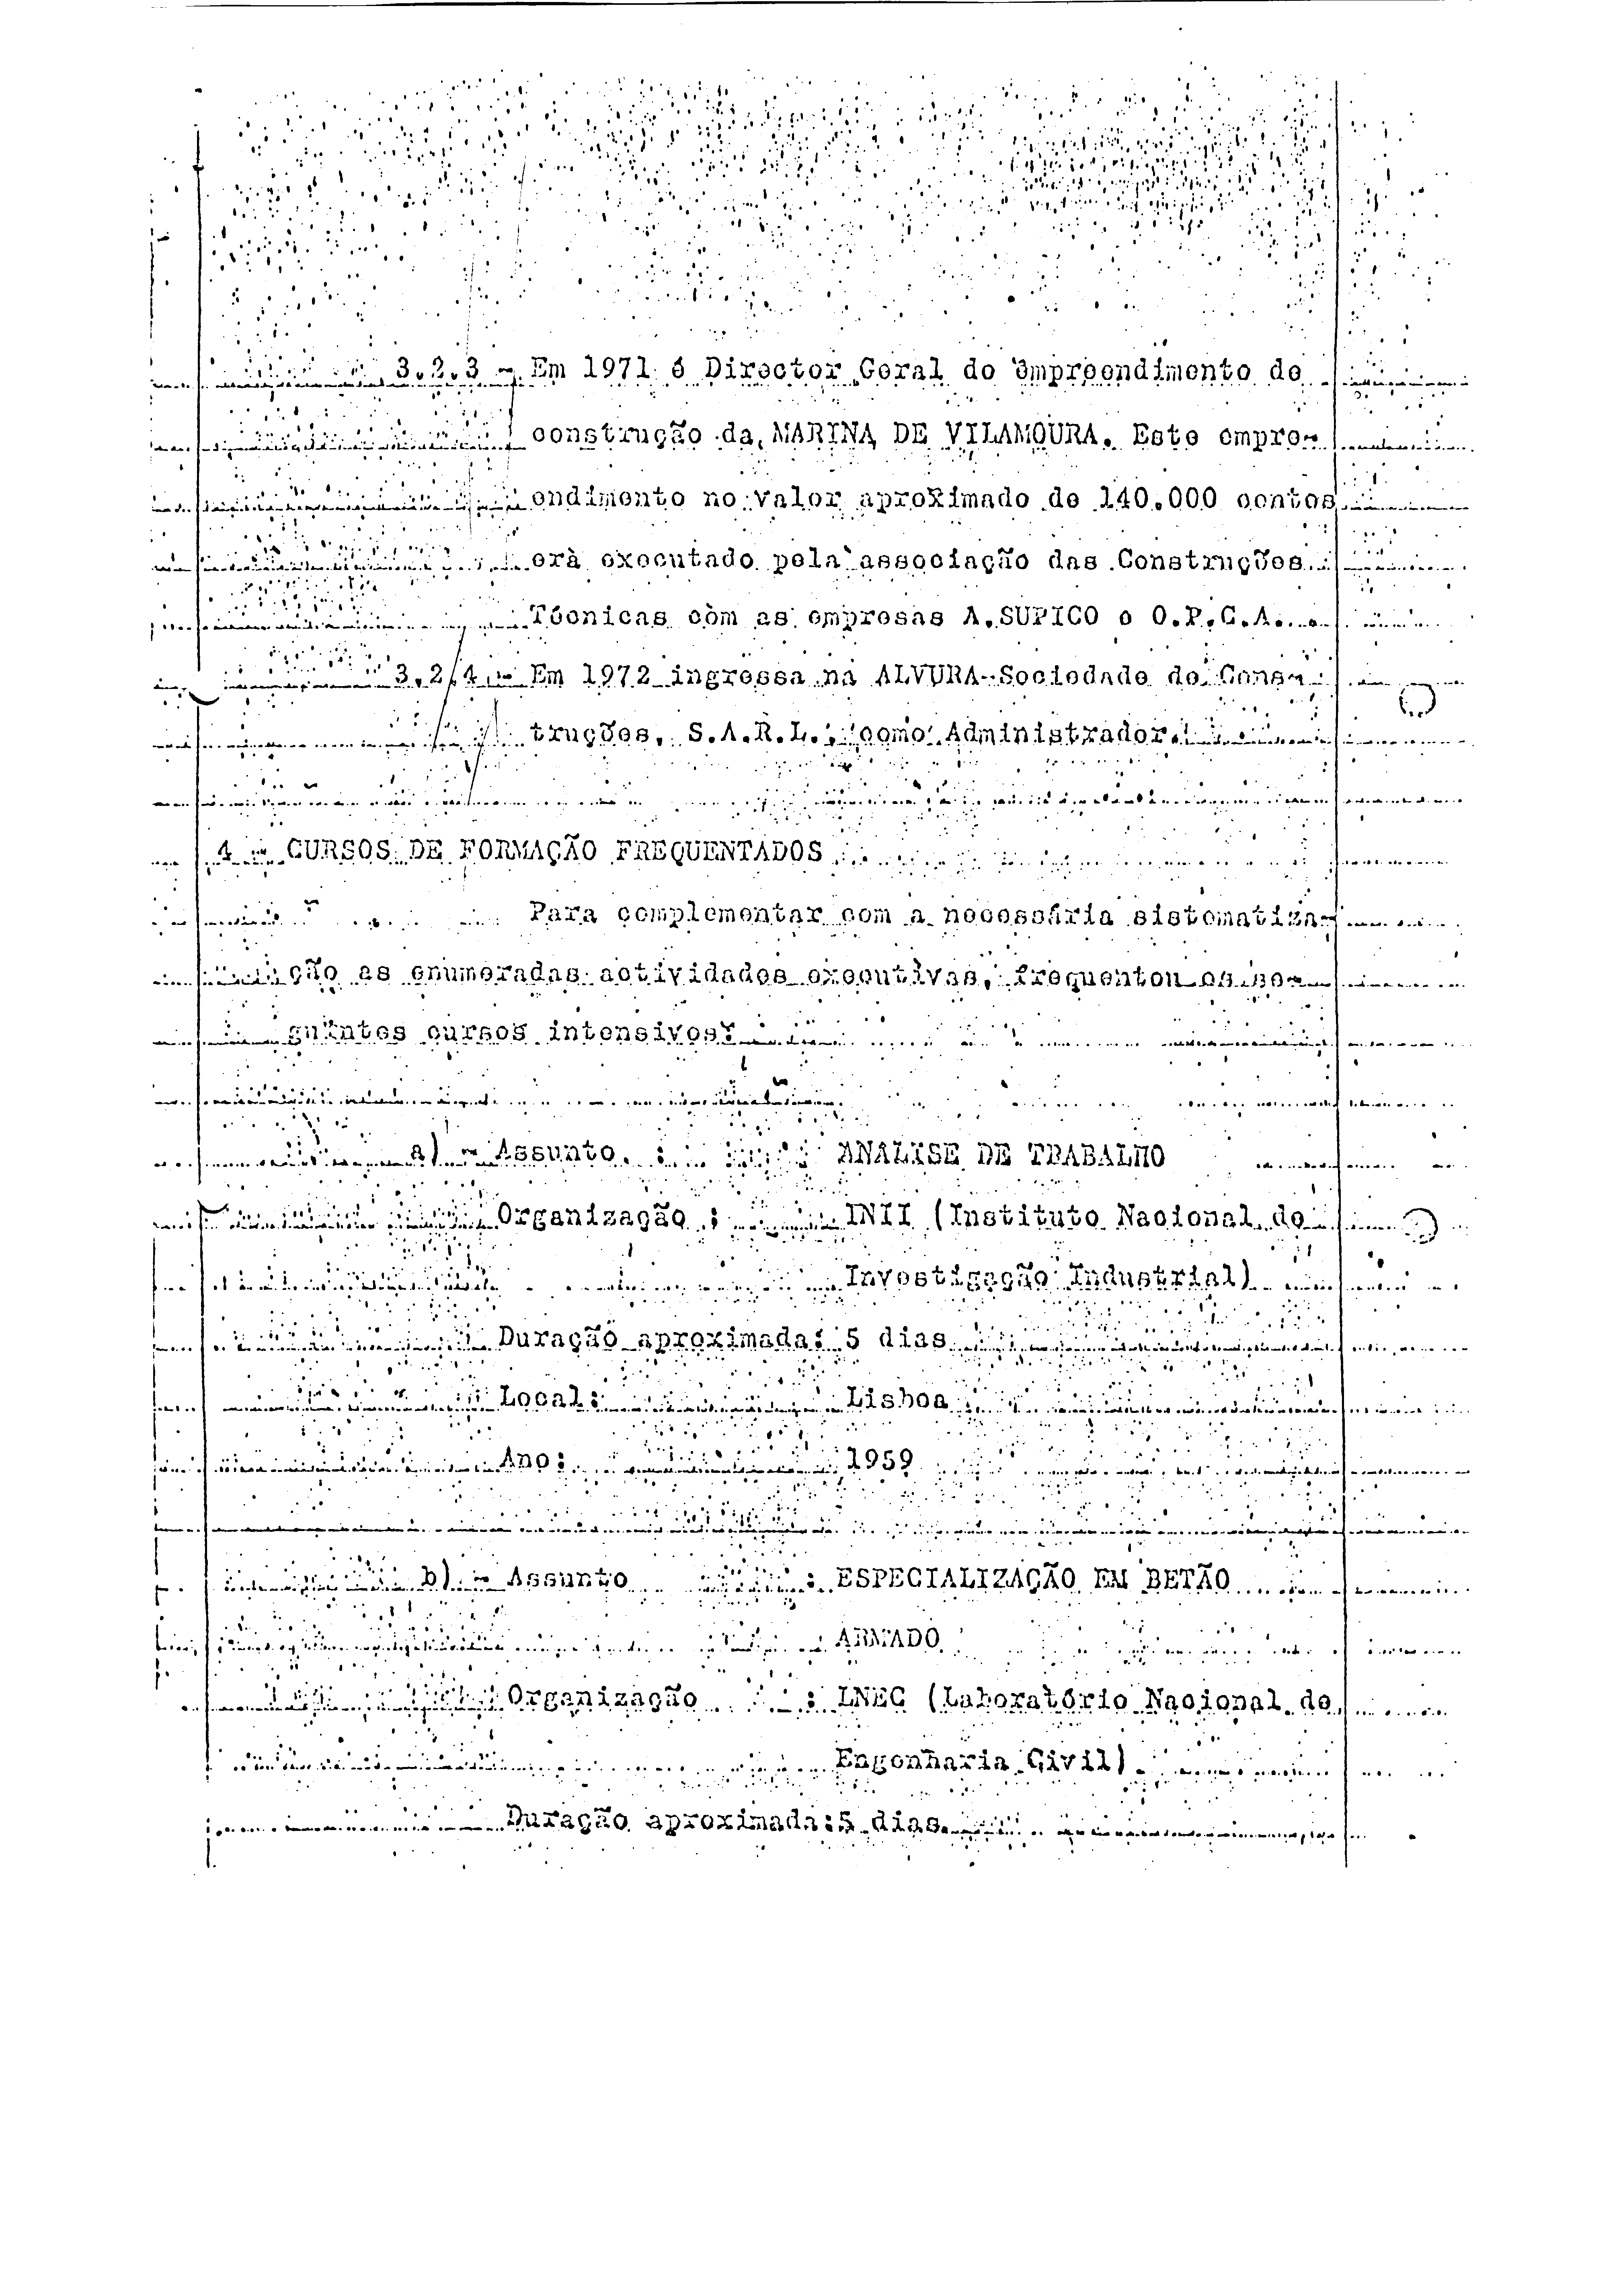 3.2.3 - Em 1971 é Director Geral do empreendimento de
construção da MARINA DE VILAMOURA. Este empre-
endimento no valor aproximado de 140.000 contos
era executado pela associação das Construções
Técnicas com as empresas A.SUPICO e O.P.C.A.
3.2.4 - Em 1972 ingressa na ALVURA-Sociedade de Cons-
truções, S.A.R.L., como Administrador.
4 - CURSOS DE FORMAÇÃO FREQUENTADOS
Para complementar com a necessária sistematiza-
ção as enumeradas actividades executivas, frequentou os se-
guintes cursos intensivos:
a) - Assunto : ANALISE DE TRABALHO
Organização : INII (Instituto Nacional de
Investigação Industrial)
Duração aproximada: 5 dias
Local: Lisboa
Ano: 1959
b) - Assunto : ESPECIALIZAÇÃO EM BETÃO
ARMADO
Organização : LNEC (Laboratório Nacional de
Engenharia Civil)
Duração aproximada:5 dias